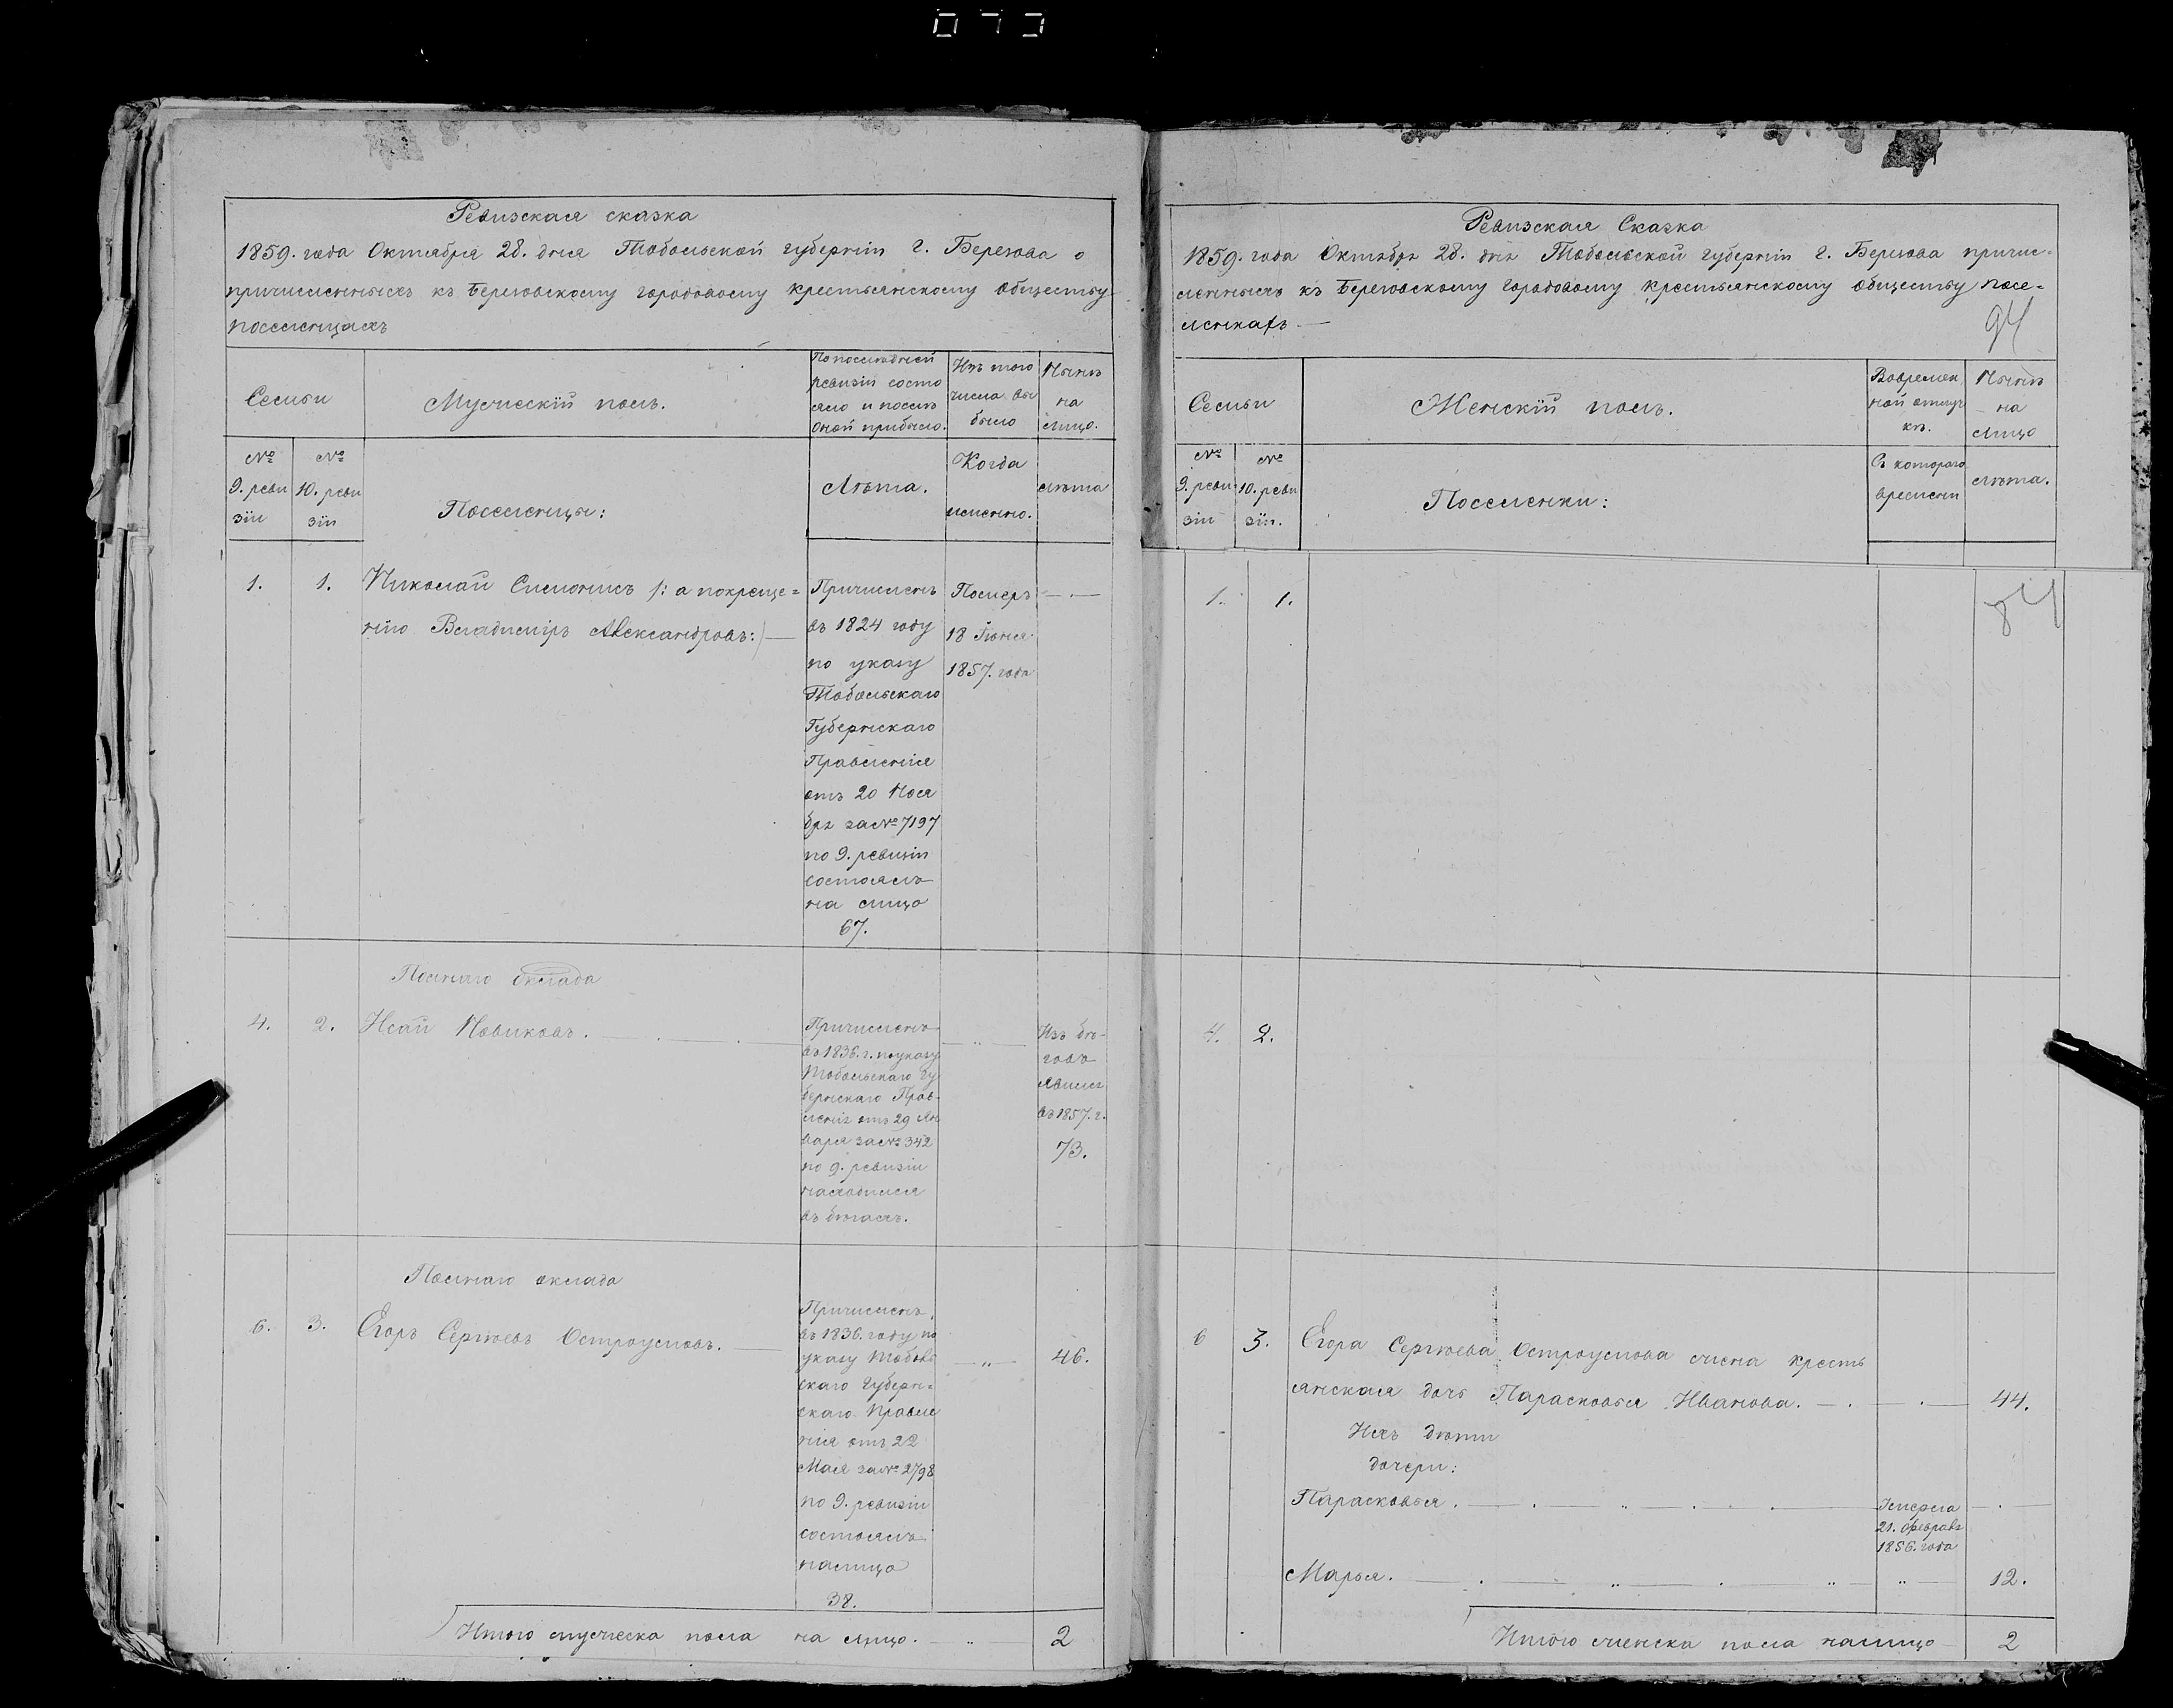 073
Ревизская сказка
1859. года Октября 28. дня Тобольской губернiи г. Березова о
причисленныхъ къ Березовскому городовому крестьянскому обществу
поселенцахъ
Семьи
Мужескiй полъ.
По последней
ревизiи состо
яло и после
оной прибыло.
Изъ того
числа вы
было
Нынѣ
на
лицо.
№
9. реви
зiи
№
10. реви
зiи
Поселенцы:
Лѣта.
Когда
именно.
лѣта
1.
1.
Николай Симонисъ /: а по креще=
нiю Владимiръ Александровъ:/
Причисленъ
въ 1824 году
по указу
Тобольскаго
Губернскаго
Правленiя
отъ 20 Ноя
бря за № 7197
по 9. ревизiи
состоялъ
на лицо
67.
Померъ
18 Iюня
1857. года
Полнаго оклада
4.
2.
Исай Новиковъ.
Причисленъ
въ 1836. г. по указу
Тобольскаго гу
бернскаго Прав-
ленiя отъ 29 Ян
варя за № 342
по 9. ревизiи
находился
въ бѣгахъ.
Изъ бѣ-
говъ
явился
въ 1857. г.
73.
Полнаго оклада
6.
3.
Егоръ Сергѣевъ Остроумовъ.
Причисленъ
въ 1836. году по
указу Тоболь
скаго Губерн=
скаго Правле
нiя отъ 22
Мая за № 2798
по 9. ревизiи
состоялъ
налицо
38.
46.
Итого мужеска пола на лицо.
2
Ревизская Сказка
1859. года Октября 28. дня Тобольской губернiи г. Березова причис-
ленныхъ къ Березовскому городовому крестьянскому обществу посе=
ленкахъ
94
Семьи
Женскiй полъ.
Во времен
ной отлуч
кѣ.
Нынѣ
на
лицо
№
9. реви
зiи
№
10. реви
зiи.
Поселенки:
Съ котораго
времени
лѣта.
1.
1.
84
4.
2.
6
3.
Егора Сергѣева Остроумова жена кресть
янская дочь Парасковья Иванова.
44.
Ихъ дѣти
дочери:
Парасковья.
Умерла
21. февраля
1856. года
Марья.
12.
Итого женска пола налицо
2